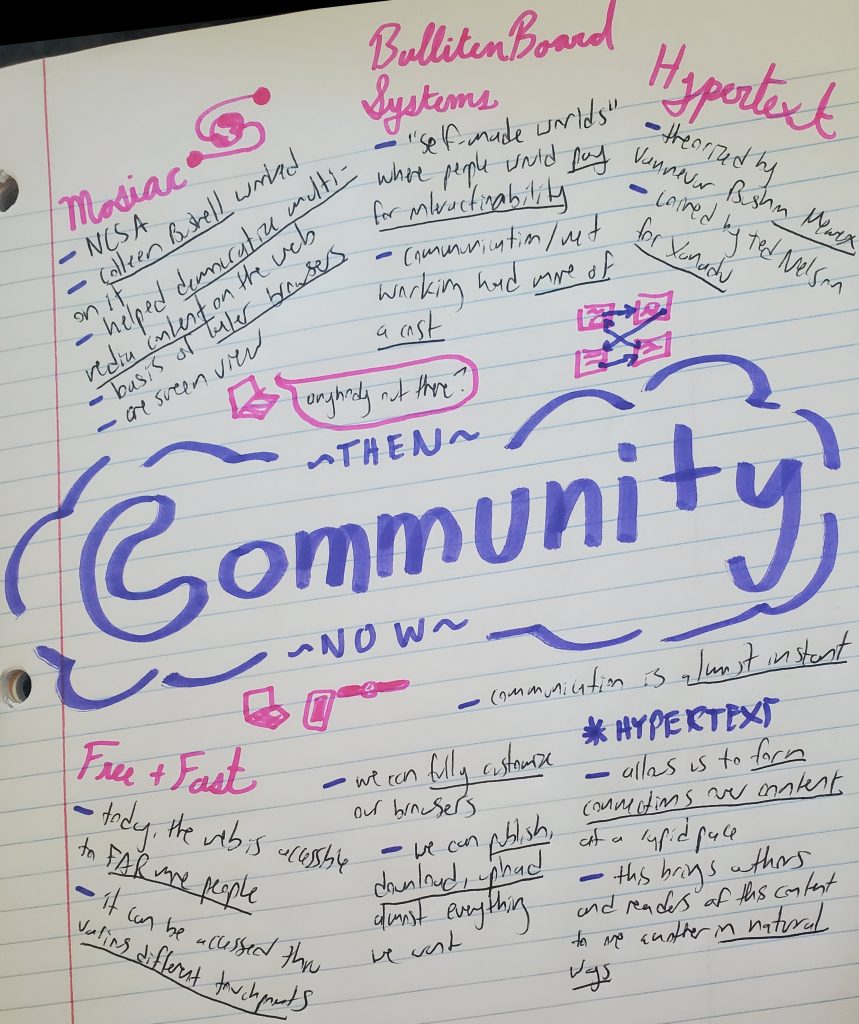 Mosiac
- NCSA
- Colleen Bushell worked
on it
- helped democratize multi-
media content on the web
- basis of later browsers
- one screen view
Bulliten Board
Systems
- "self-made worlds"
where people would pay
for interactinability
- communication/net
working had more of
a cost
Hypertext
- theorized by
Vannevar Bush in Memex
- coined by Ted Nelson
for Xanadu
anybody out there?
~THEN~
Community
~NOW~
- communication is almost instant
Free + Fast
- today, the web is accessible
to FAR more people
- it can be accessed thru
different touchpoints
- we can fully customize
our browsers
- we can publish,
download, upload
almost everything
we want
* HYPERTEXT
- allows us to form
connections over content
at a rapid pace
- this brings authors
and readers of this content
to one another in natural
ways